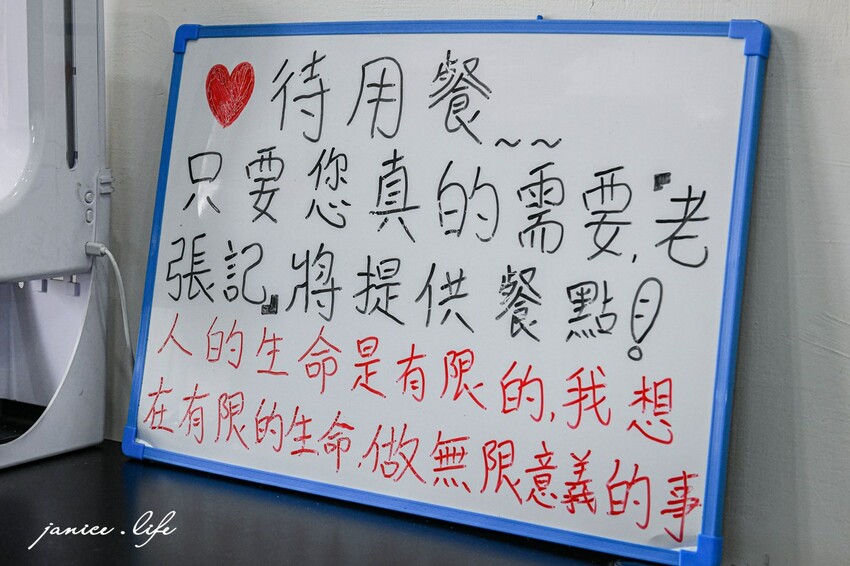 ❤待用餐~~
只要您真的需要,『老
張記』將提供餐點!
人的生命是有限的,我想
在有限的生命,做無限意義的事
janice.life